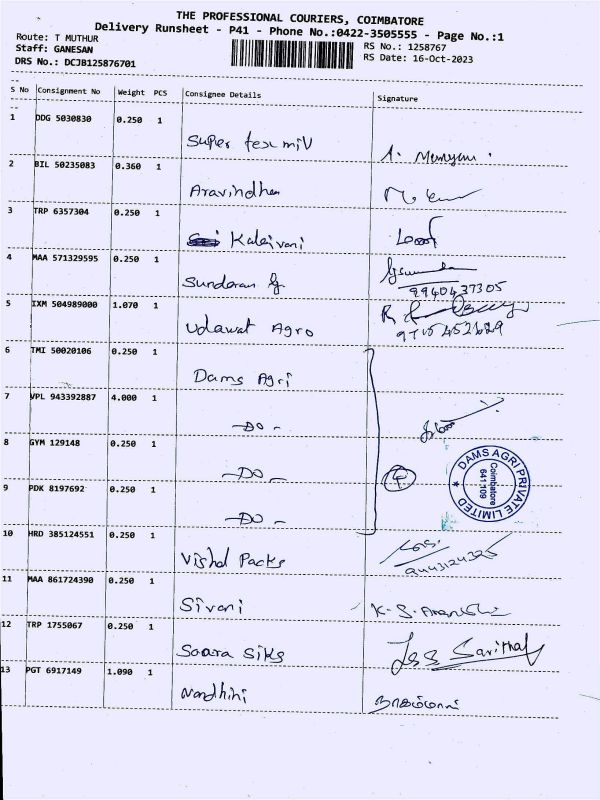 THE PROFESSIONAL COURIERS, COIMBATORE
Delivery Runsheet - P41 - Phone No.:0422-3505555 - Page No.:1
Route: T MUTHUR
RS No.: 1258767
Staff: GANESAN
RS Date: 16-Oct-2023
DRS No.: DCJB125876701
S No Consignment No Weight PCS Consignee Details Signature
1 DDG 5030830 0.250 1
Super tex
2 BIL 50235083 0.360 1
Aravindhan
3 TRP 6357304 0.250 1
Kalaivani
4 MAA 571329595 0.250 1
Sundaran
9940437305
5 IXM 504989000 1.070 1
Udawat Agro
6 TMI 50020106 0.250 1
Dams Agri
7 VPL 943392887 4.000 1
-DO-
8 GYM 129148 0.250 1
-DO-
4
DAMS AGRI PRIVATE LIMITED
Coimbatore
641 109
9 PDK 8197692 0.250 1
-DO-
10 HRD 385124551 0.250 1
Vishal Packs
9443124325
11 MAA 861724390 0.250 1
Sivani
12 TRP 1755067 0.250 1
Saara Silks
13 PGT 6917149 1.090 1
Nandhini
நாகம்மாள்